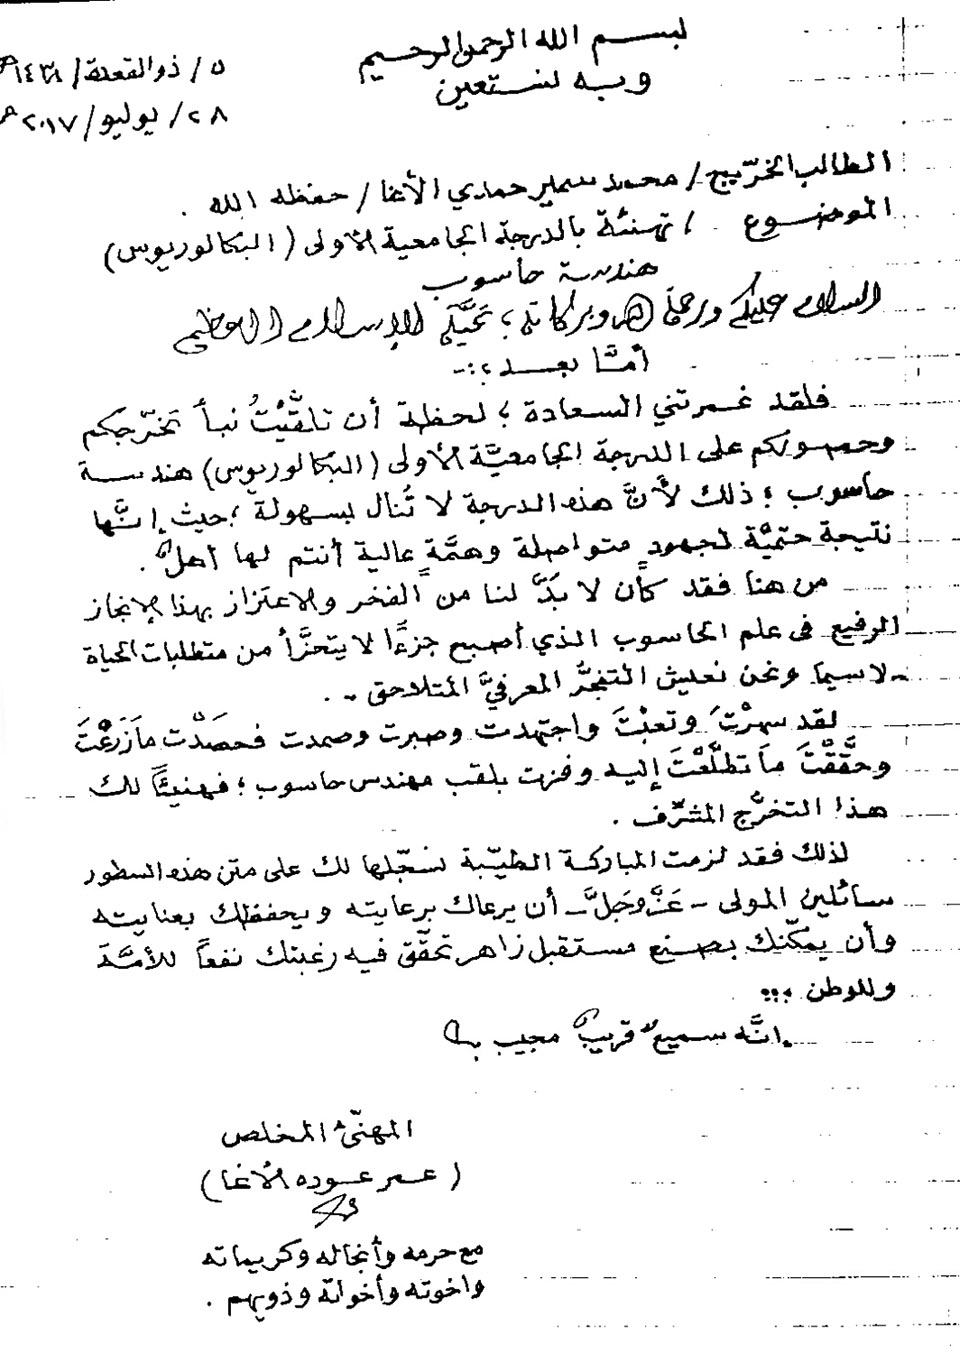 بسم الله الرحمن الرحيم
وبه نستعين
٥/ ذو القعدة/ ١٤٣٨هـ
٢٨/ يوليو/ ٢٠١٧م
الطالب الخرّيج/ محمد سمير حمدي الأغا/ حفظه الله.
الموضوع / تهنئة بالدرجة الجامعية الأولى (البكالوريوس)
هندسة حاسوب
السلام عليكم ورحمة الله وبركاته؛ تحيَّة الإسلام العظيم
أمَّا بعد؛:-
فلقد غمرتني السعادة؛ لحظة أن تلقَّيْتُ نبأ تخرّجكم
وحصولكم على الدرجة الجامعيَّة الأولى (البكالوريوس) هندسة
حاسوب؛ ذلك لأنَّ هذه الدرجة لا تُنال بسهولة؛ حيث إنَّها
نتيجة حتميَّة لجهودٍ متواصلة وهمَّةٍ عالية أنتم لها أهلٌ.
من هنا فقد كان لا بدَّ لنا من الفخر والاعتزاز بهذا الإنجاز
الرفيع في علم الحاسوب الذي أصبح جزءًا لا يتجزَّأ من متطلبات الحياة
لاسيما ونحن نعيش التفجُّر المعرفيَّ المتلاحق -.
لقد سهرْتَ وتعبْتَ واجتهدت وصبرت وصمدت فحصَدْت مازَرَعْتَ
وحقَّقْتَ ما تطلَّعْتَ إليه وفزت بلقب مهندس حاسوب؛ فهنيئًا لك
هذا التخرُّج المشرِّف.
لذلك فقد لزمت المباركة الطيّبة نسجّلها لك على متن هذه السطور
سائلين المولى - عَزَّ وجَلَّ - أن يرعاك برعايته ويحفظك بعنايته
وأن يمكّنك بصنع مستقبل زاهر تحقّق فيه رغبتك نفعاً للأمَّة
وللوطن ؛؛؛
إنَّه سميعٌ قريبٌ مجيب
المهنّئ المخلص
(عمر عوده الأغا)
مع حرمه وأنجاله وكريماته
واخوته وأخواته وذويهم.